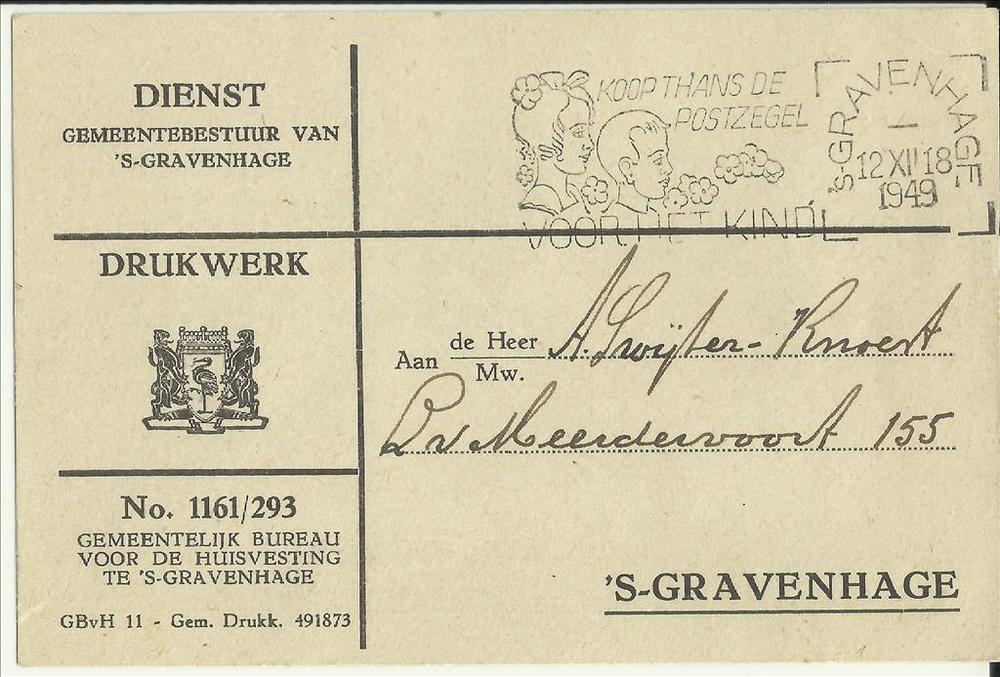 DIENST
GEMEENTEBESTUUR VAN
'S-GRAVENHAGE
KOOP THANS DE
POSTZEGEL
VOOR HET KIND
'S-GRAVENHAGE
12 XII 18
1949
DRUKWERK
Aan de Heer
Mw.
A. Swijter-Knoert
L v Meerdervoort 155
No. 1161/293
GEMEENTELIJK BUREAU
VOOR DE HUISVESTING
TE 'S-GRAVENHAGE
GBvH 11 - Gem. Drukk. 491873
'S-GRAVENHAGE